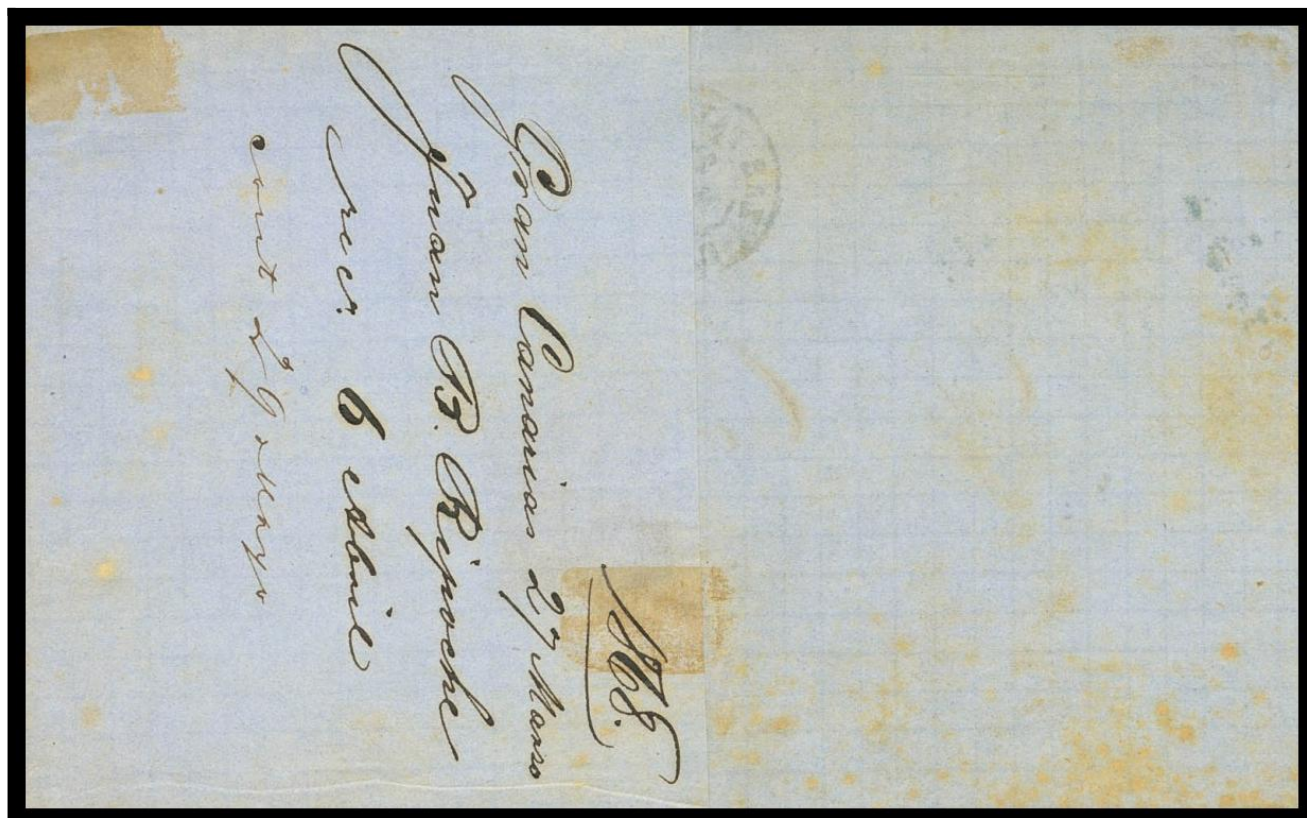 1868.
Gran Canarias 27 Marzo
Juan B. Ripoche
rec. 6 Abril
cont 29 Mayo